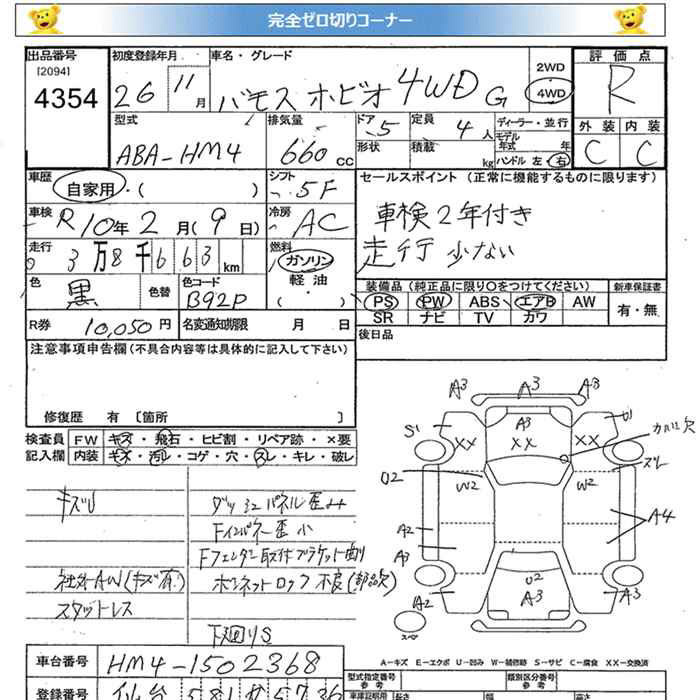 完全ゼロ切りコーナー
出品番号 初度登録年月 車名・グレード 評価点
[2094]
4354 26 11月 バモス ホビオ 4WD G 2WD 4WD R
型式 排気量 ドア 5 定員 4人 ディーラー・並行 外装 内装
ABA-HM4 660cc 形状 積載 kg モデル年式 年 ハンドル 左・右 C C
車歴 自家用・( ) シフト 5F セールスポイント (正常に機能するものに限ります)
車検 R10年2月(9日) 冷房 AC 車検2年付き
走行 3万8千663km 燃料 ガソリン 軽油 ( ) 走行少ない
色 黒 色替 色コード B92P 装備品 (純正品に限り○をつけてください) 新車保証書
PS PW ABS エアB AW 有・無
SR ナビ TV カワ
R券 10,050円 名変通知期限 月 日 後日品
注意事項申告欄(不具合内容等は具体的に記入して下さい)
修復歴 有 [箇所 ]
検査員 FW キズ・飛石・ヒビ割・リペア跡・×要
記入欄 内装 キズ・汚れ・コゲ・穴・スレ・キレ・破レ
キズU ダッシュパネル歪み
Fインパネー歪 小
Fフェンダー取付ブラケット曲り
社外AW(キズ有) ボンネットロック不良(部品欠)
スタットレス
下廻りS
A3 A3 A3
S1 XX A3 XX XX U1 カバー欠
U2 W2 W2 スレ
A2 A4
A3
A2 U2 A3 A3
スペア
A-キズ E-エクボ U-凹み W-補修跡 S-サビ C-腐食 XX-交換済
車台番号 HM4-1502368 型式指定番号 類別区分番号
参考 参考
登録番号 仙台 581 せ 5736 車庫証明用 長さ 幅 高さ